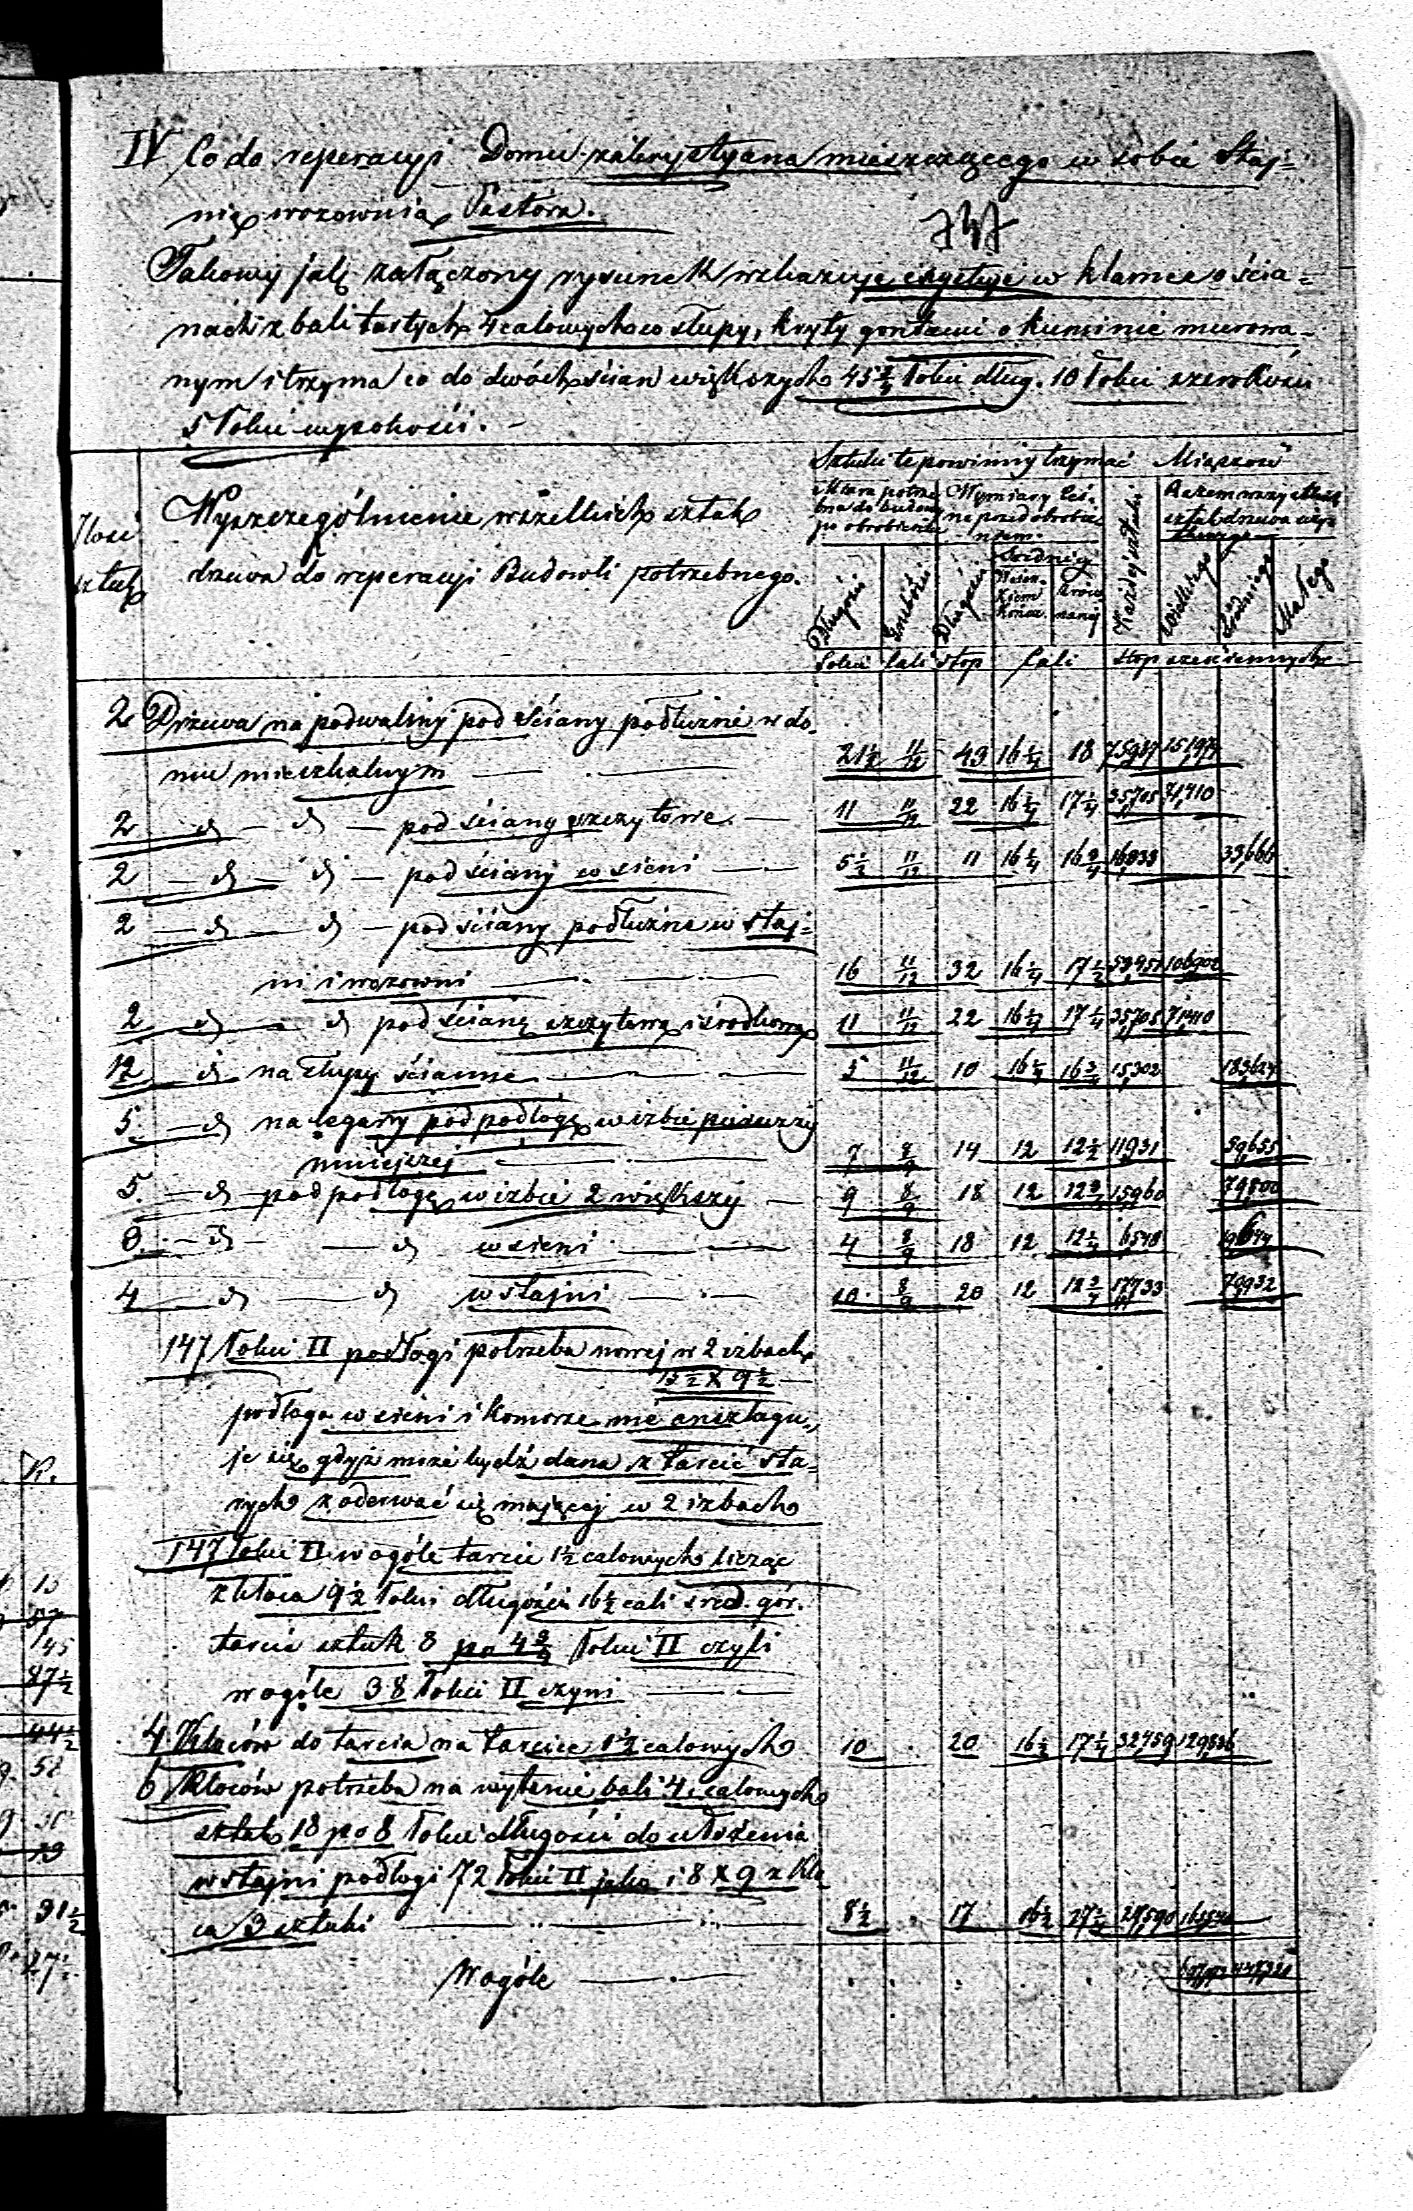 IV Co do reperacyi Domu zakrystyana mieszczącego w sobie Staj=
nię wozownią Pastora.
Takowy jak załączony rysunek wskazuje exystuje w klamce o ścia=
nach z bali tartych 4 calowych w słupy, kryty gontami o kuminie murowa=
nym i trzyma co do dwóch ścian większych 45 3/4 łokci dług. 10 łokci szerokości
5 łokci wysokości. –
Ilość sztuk
Wyszczególnienie wszelkich sztuk
drzewa do reperacyi Budowli potrzebnego.
Sztuki te powinny trzymać Miąższość
Miara potrze bna do budowy po obrobieniu
Wymiary leś. ne przed obrobie niem
Razem wszystkich sztuk drzewa
Średnicy
Długości Grubości Długości końca Każdej sztuki Wielkiego Średniego Małego
Łokci Cali stop Cali stop sześciennych
2 Drzewa na podwaliny pod ściany podłużne w do
mu mieszkalnym — 21 1/2 11/12 43 16 1/4 18 75,987 151,974
2 — d – d — pod ściany szczytowe — 11 11/12 22 16 1/4 17 1/4 35,705 71,410
2 — d – d — pod ściany w sieni — 5 1/2 11/12 11 16 1/4 16 3/4 16,833 33,666
2 — d — d — pod ściany podłużne w staj=
ni i wozowni — 16 11/12 32 16 1/4 17 1/2 53,951 106,902
2 — d — d pod ścianę szczytową i środkową 11 11/12 22 16 1/4 17 1/4 35,705 71,410
12 — d na słupy ścianne — 5 11/12 10 16 1/4 16 3/4 15,302 183,624
5. — d na legary pod podłogę w izbie pierwszy
mniejszej — 7 8/9 14 12 12 1/2 11,931 59,655
5. — d — pod podłogę w izbie 2 większy — 9 8/9 18 12 12 3/4 15,960 79,800
3. — d — d w sieni — 4 8/9 18 12 12 1/4 6,548 19,644
4 — d — d w stajni — 10 8/9 20 12 12 3/4 17,733 70,932
147 łokci II podłogi potrzeba nowej w 2 izbach
15 1/2 X 9 1/2 —
podłoga w sieni i komorze nie anszlagu=
je się gdyż może bydź dana z tarcic sta=
rych z oderwać się mającej w 2 izbach
147 łokci II w ogóle tarcic 1 1/2 calowych licząc
z kloca 9 1/2 łokci długości 16 1/2 cali śred. gór.
tarcic sztuk 8 po 4 3/4 łokci II czyli
w ogóle 38 łokci II czyni —
4 Kloców do tarcia na tarcice 1 1/2 calowych 10 . 20 16 1/2 17 1/4 32,459 129,836
6 Kloców potrzeba na wytarcie bali 4 calowych
sztuk 18 po 8 łokci długości do ułożenia
w stajni podłogi 72 łokci II jako i 8 X 9 z klo
ca 3 sztuki — 8 1/2 . 17 16 1/2 17 1/4 27,590 165,540
W ogóle —